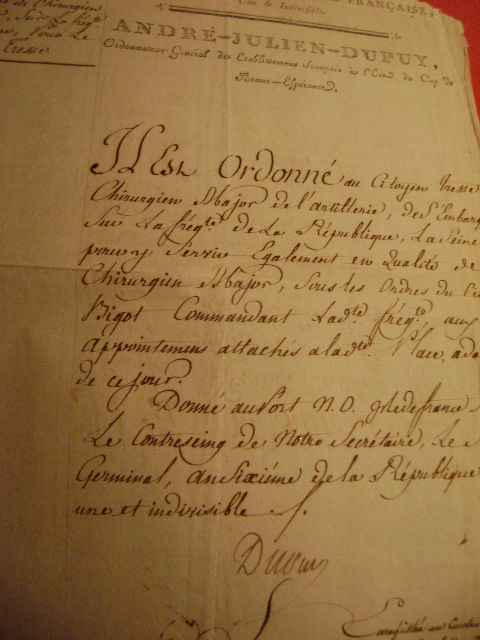 de Chirurgien
, Sur la frégte
, Pour Le
Tresse
FRANÇAISE,
Une & Indivisible.
ANDRÉ-JULIEN-DUPUY,
Ordonnateur-Général des Etablissemens Français à l'Est du Cap de
Bonne-Espérance.
Il Est Ordonné au Citoyen Tresse
Chirurgien Major de l'artillerie, de S'Embarq
Sur La frégte de La République, La Seine
pour y Servir Egalement en Qualité de
Chirurgien Major, Sous les Ordres du Ci
Bigot Commandant Ladte frégte, aux
appointemens attachés a ladte Place, ada
de ce jour.
Donné au Port N.O. Isle de france
Le Contreseing de Notre Secrétaire, Le
Germinal, an Sixième de la République
une et indivisible
Dupuy
Enregistrée au Contrôle